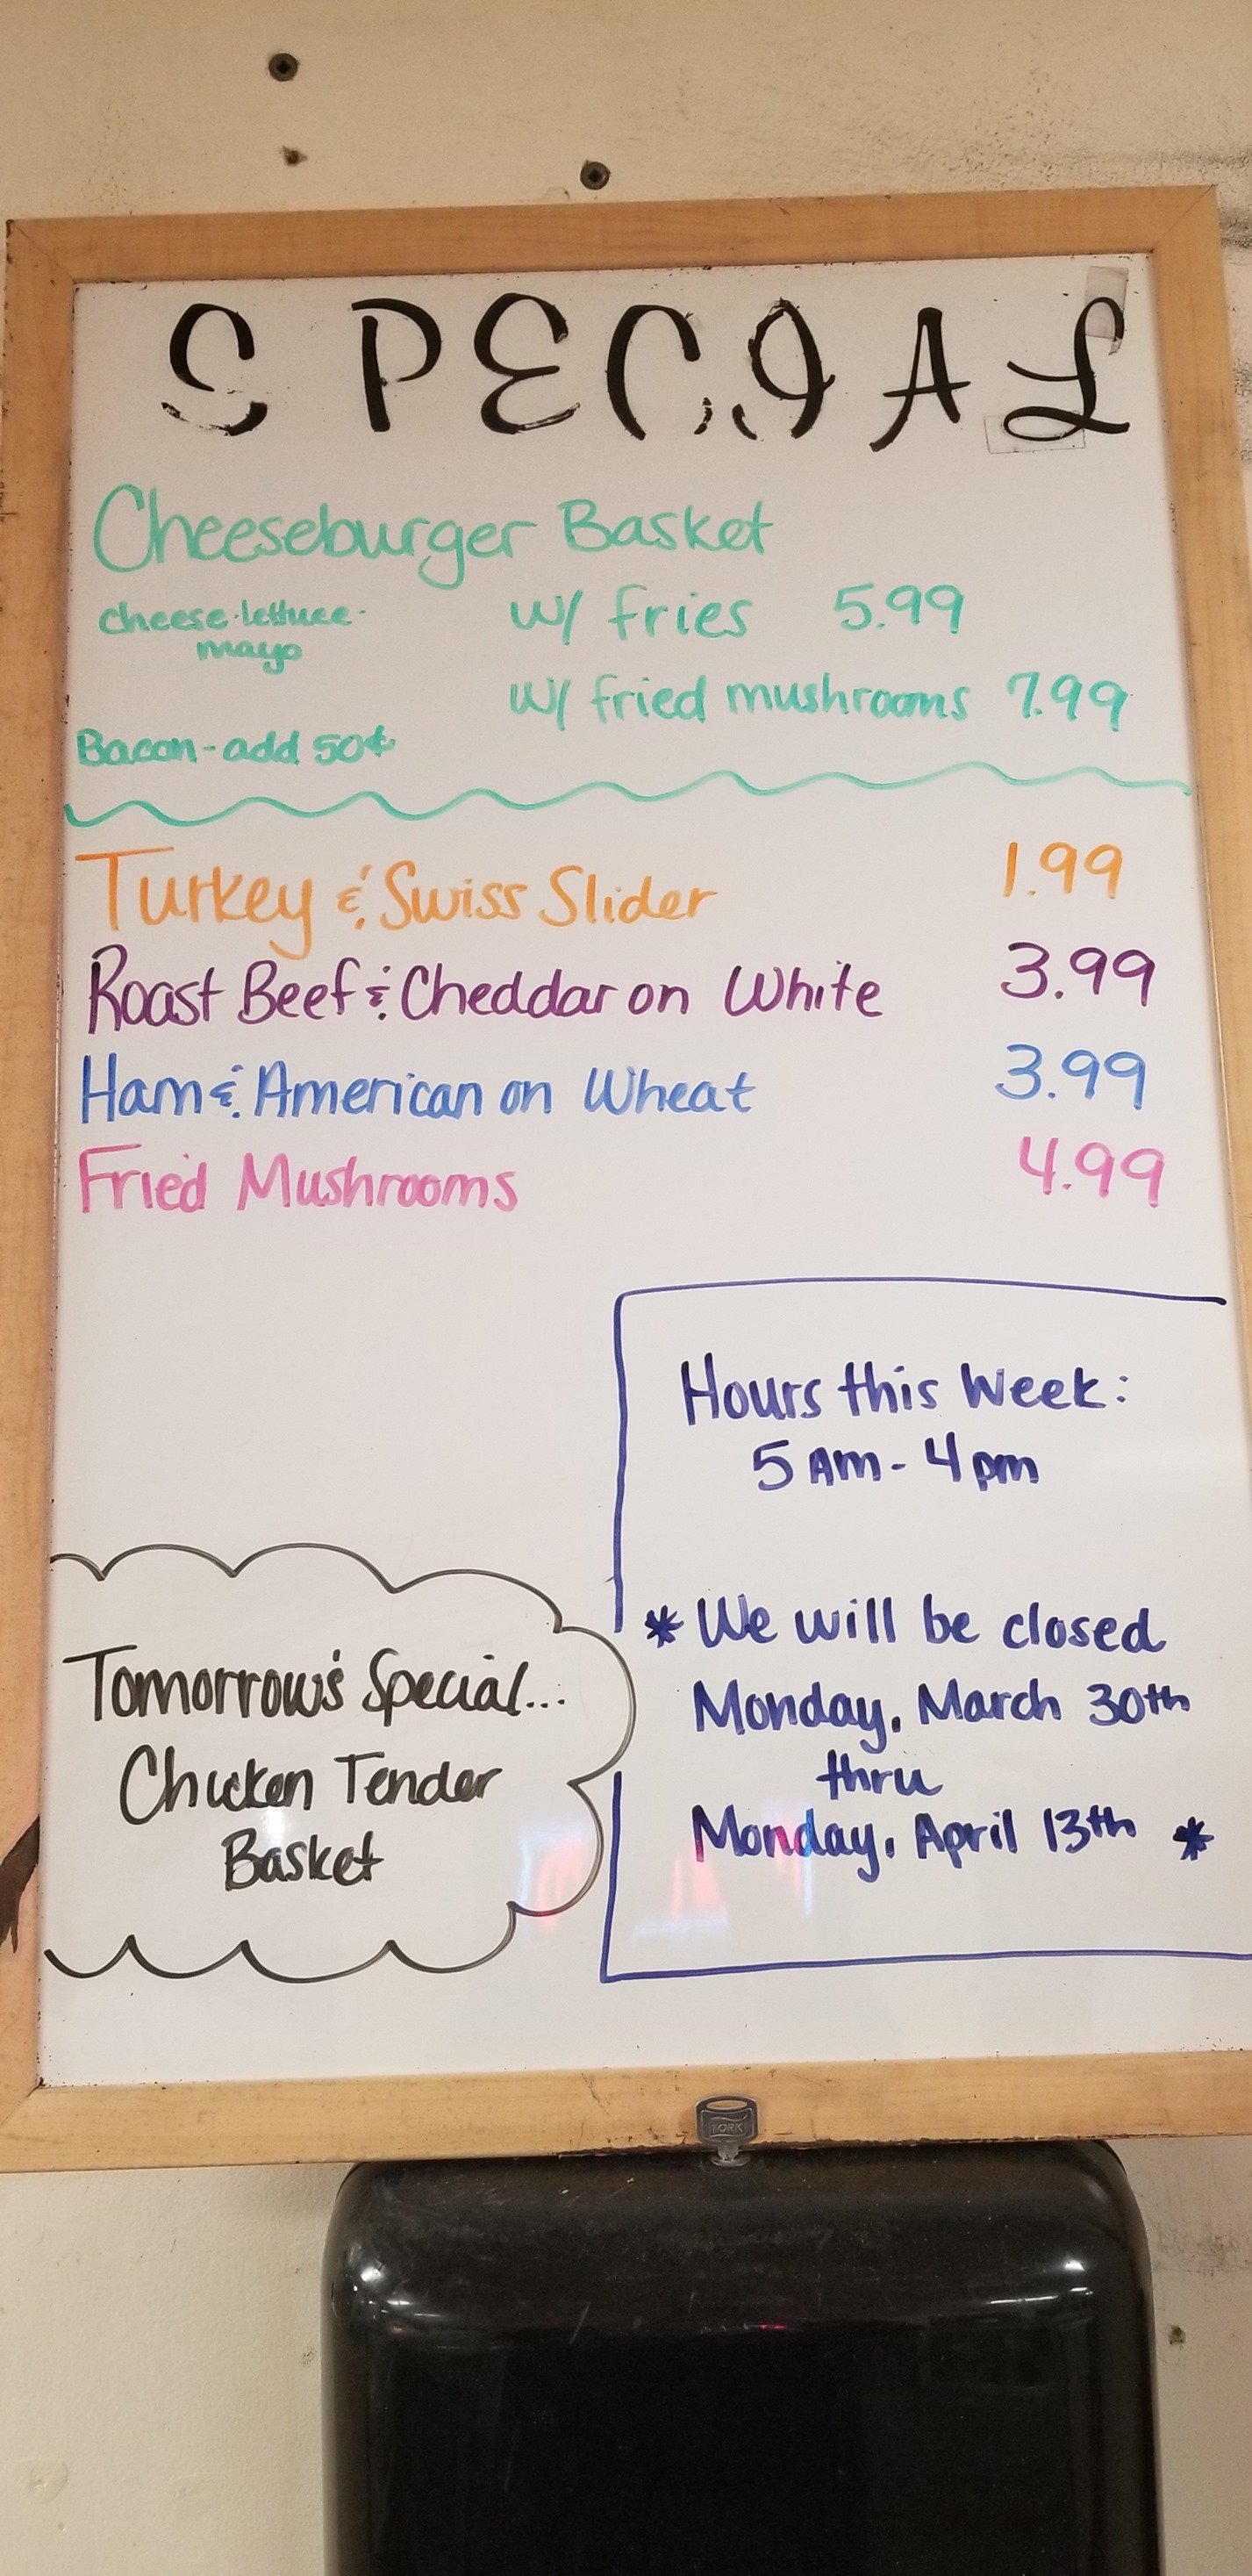 SPECIAL
Cheeseburger Basket
cheese·lettuce- w/ fries 5.99
mayo
w/ fried mushrooms 7.99
Bacon-add 50¢
Turkey & Swiss Slider 1.99
Roast Beef & Cheddar on White 3.99
Ham & American on Wheat 3.99
Fried Mushrooms 4.99
Hours this Week:
5 Am - 4 pm
* We will be closed
Monday, March 30th
thru
Monday, April 13th *
Tomorrow's Special...
Chicken Tender
Basket
TORK